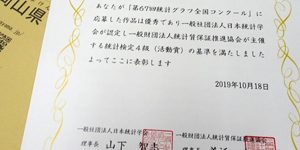 岡山県
あなたが「第67回統計グラフ全国コンクール」に
応募した作品は優秀であり一般社団法人日本統計学
会が認定し一般財団法人統計質保証推進協会が主催
する統計検定4級(活動賞)の基準を満たしました
よってここに表彰します
2019年10月18日
一般社団法人日本統計学会
理事長 山下 智志
一般財団法人統計質保証推進協会
理事長